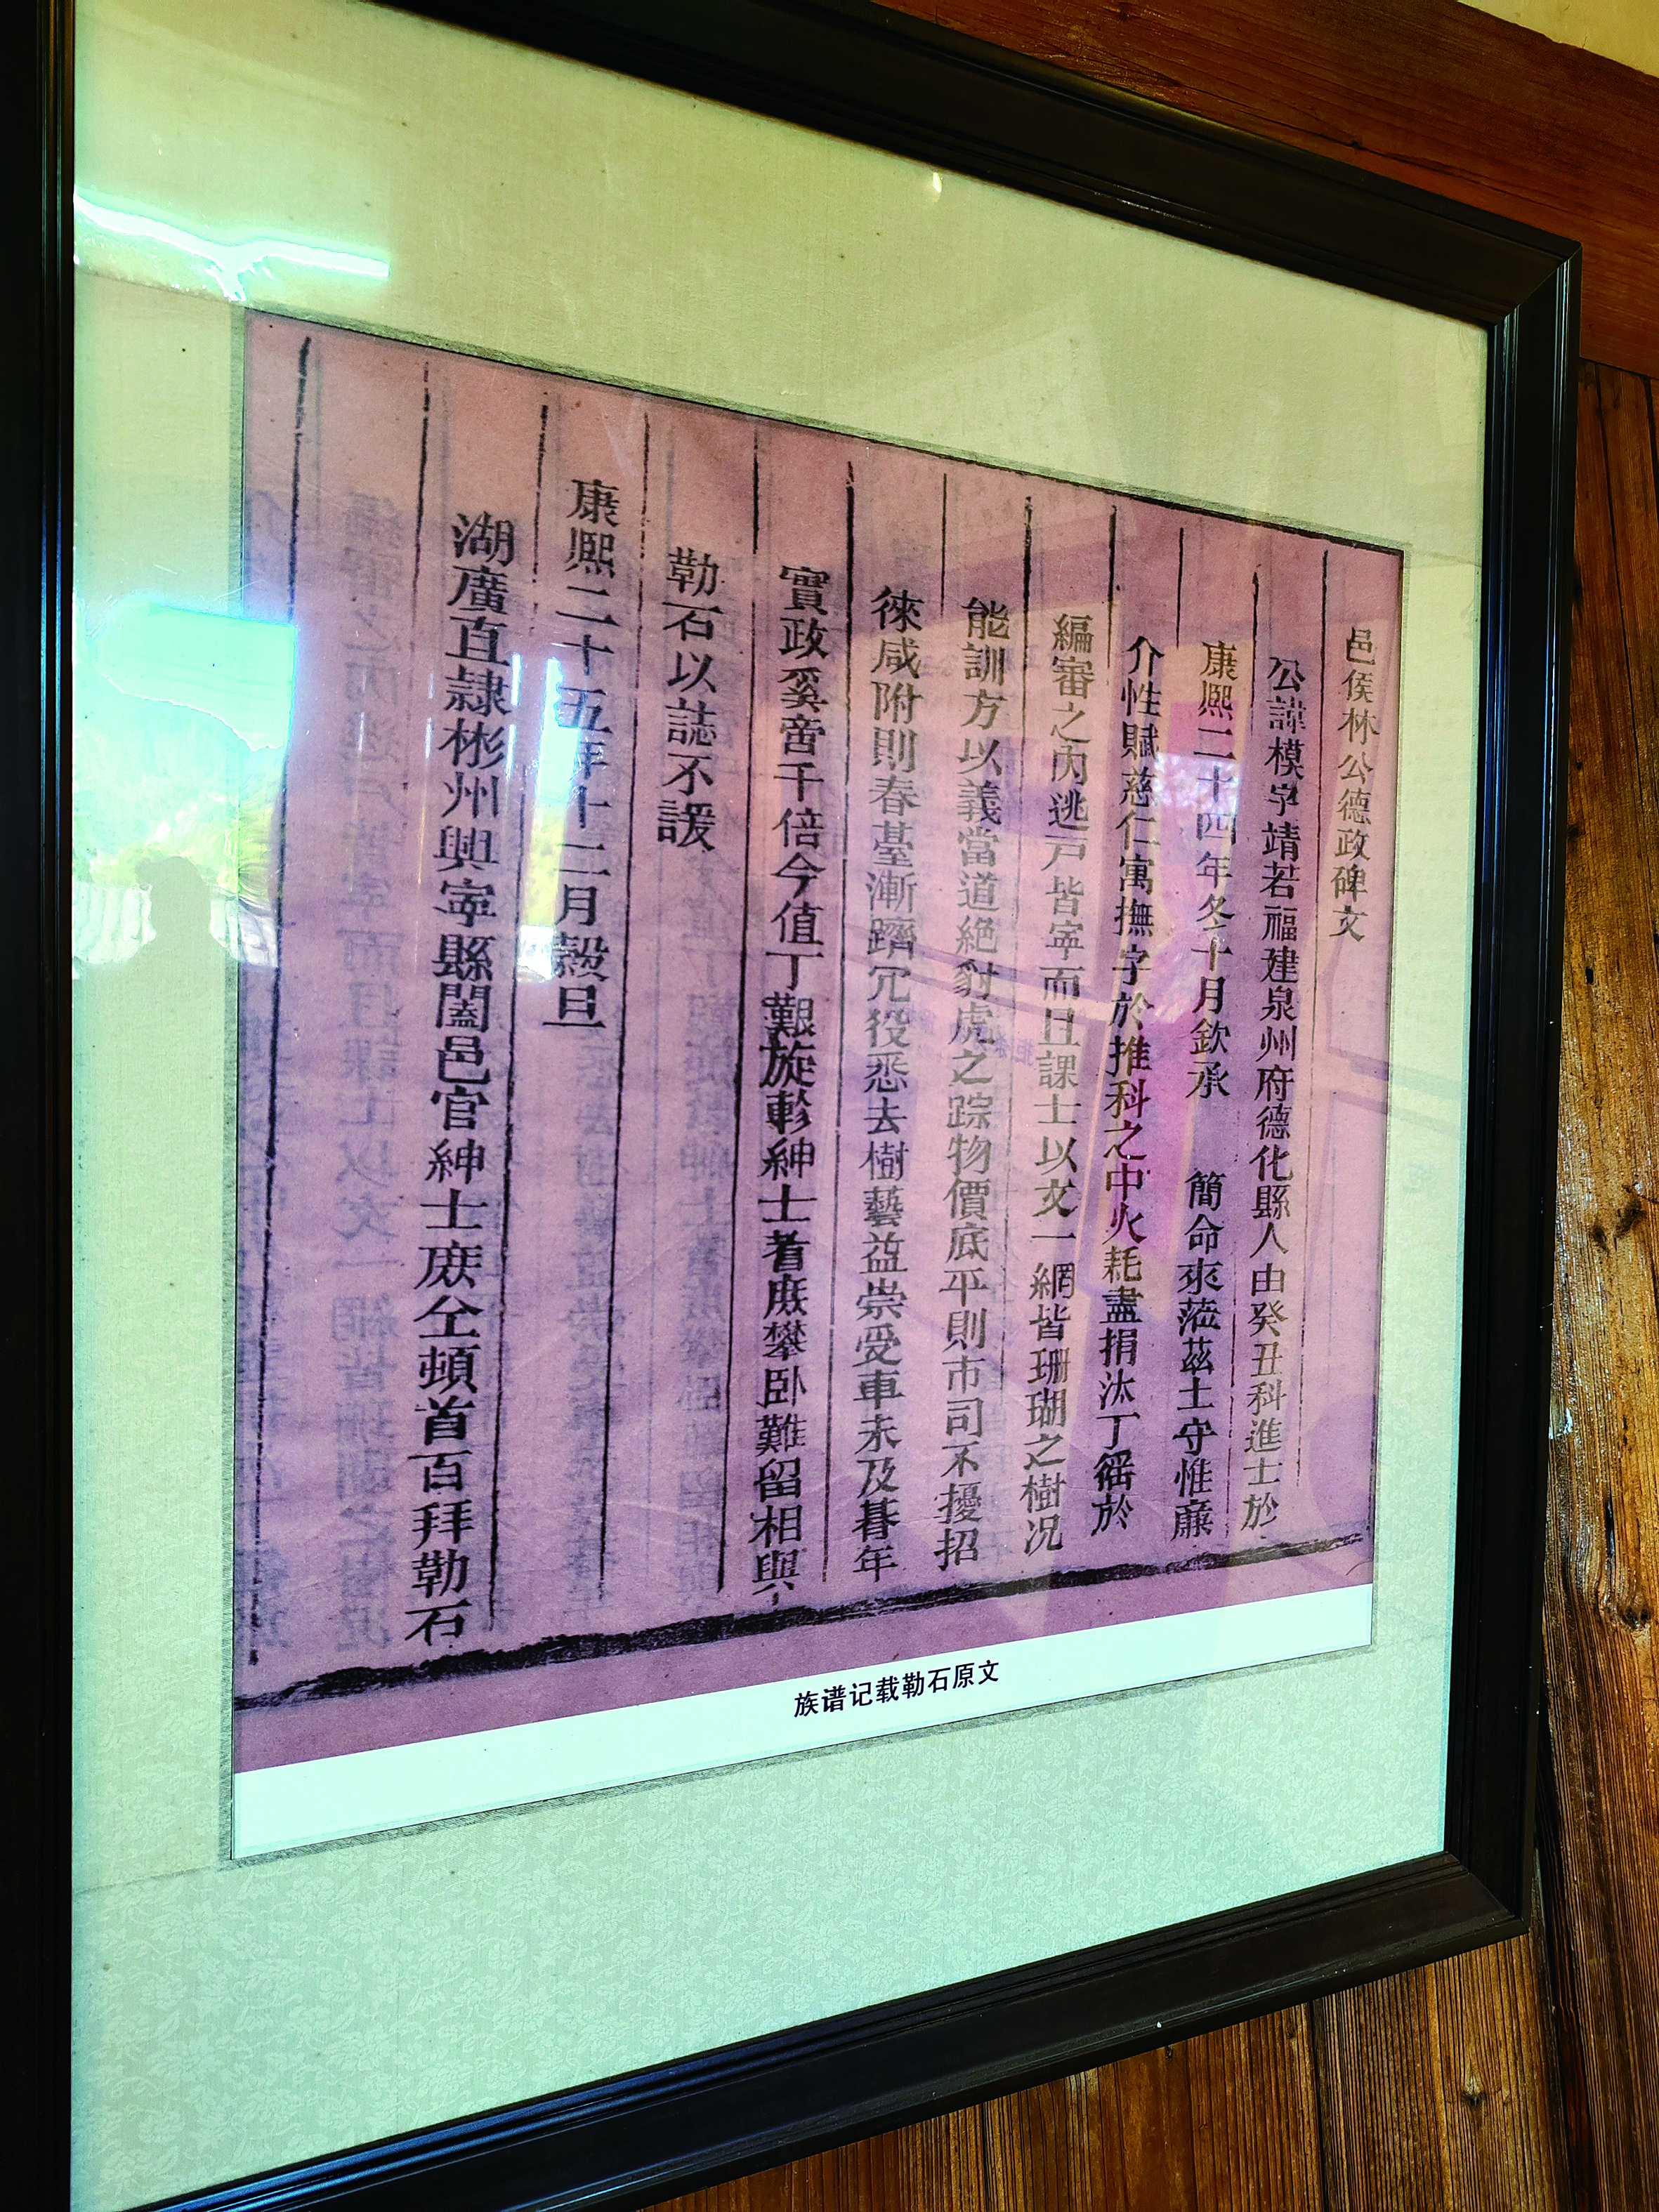 邑侯林公德政碑文
公諱模字靖若福建泉州府德化縣人由癸丑科進士於
康熙二十四年冬十月欽承 簡命來蒞茲土守惟廉
介性賦慈仁寓撫字於推科之中火耗盡捐汰丁徭於
編審之內逃戸皆寧而且課士以文一網皆珊瑚之樹况
能訓方以義當道絶豺虎之踪物價底平則市司不擾招
徠咸附則春臺漸躋冗役悉去樹藝益崇受車未及朞年
實政奚啻千倍今值丁艱旋軫紳士耆庶攀卧難留相與
勒石以誌不諼
康熙二十五年十二月榖旦
湖廣直隷彬州興寧縣闔邑官紳士庶仝頓首百拜勒石
族谱记载勒石原文